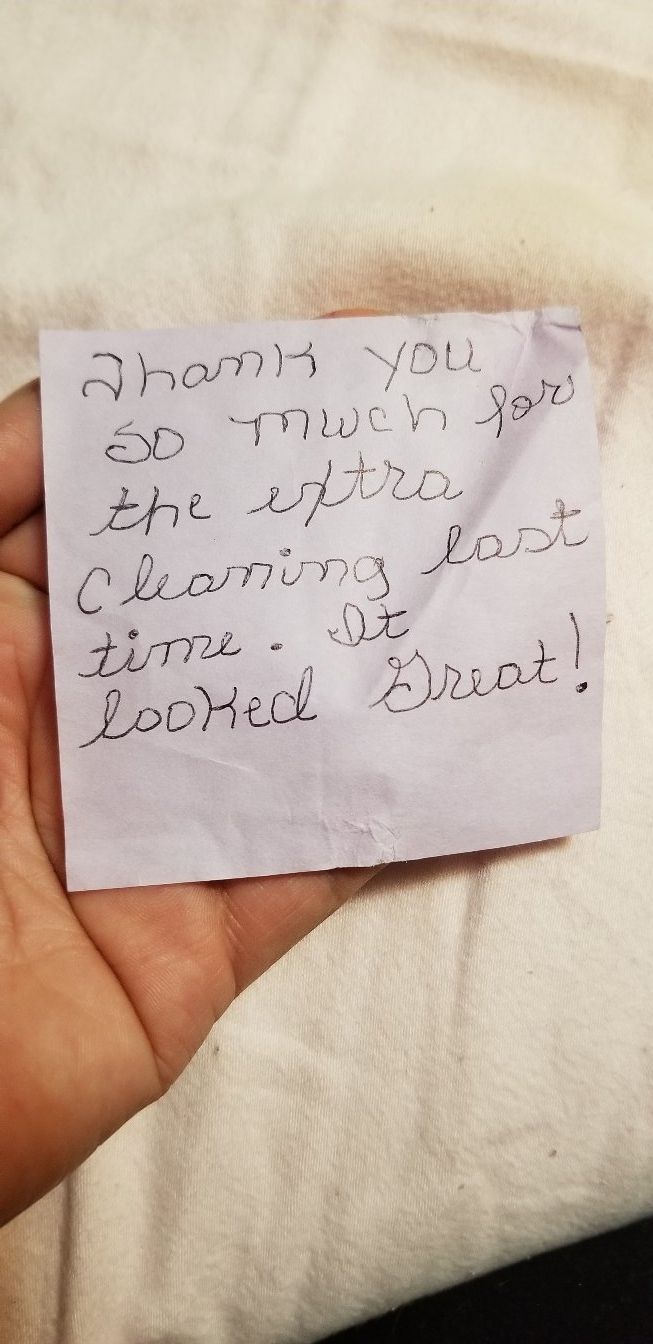 Thank you
so much for
the extra
cleaning last
time. It
looked Great!